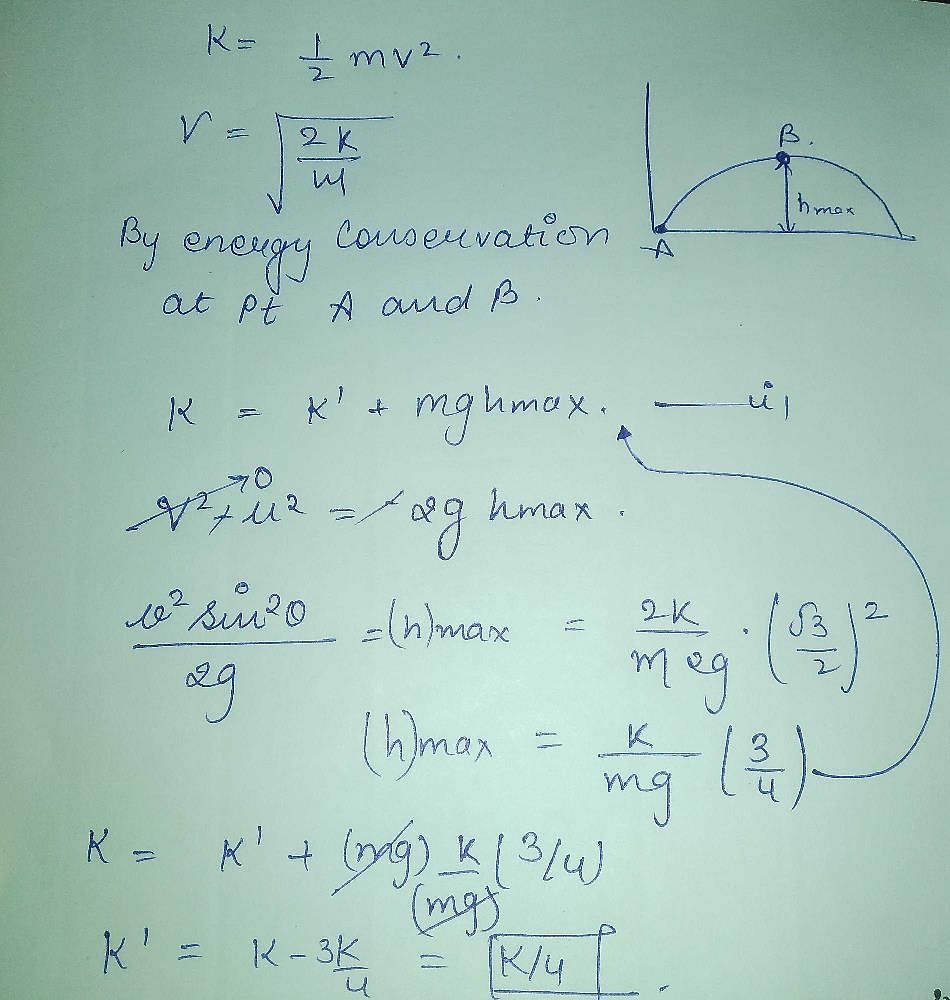 K = 1/2 mv².
V = √(2K/m)
B.
hmax
A
By energy conservation
at pt A and B.
K = K' + mghmax. — ii)
V² + u² = - 2g hmax.
0
v² sin²θ / 2g = (h)max = 2K / m 2g · (√3/2)²
(h)max = K/mg (3/4)
K = K' + (mg) K/(mg) (3/4)
K' = K - 3K/4 = K/4.